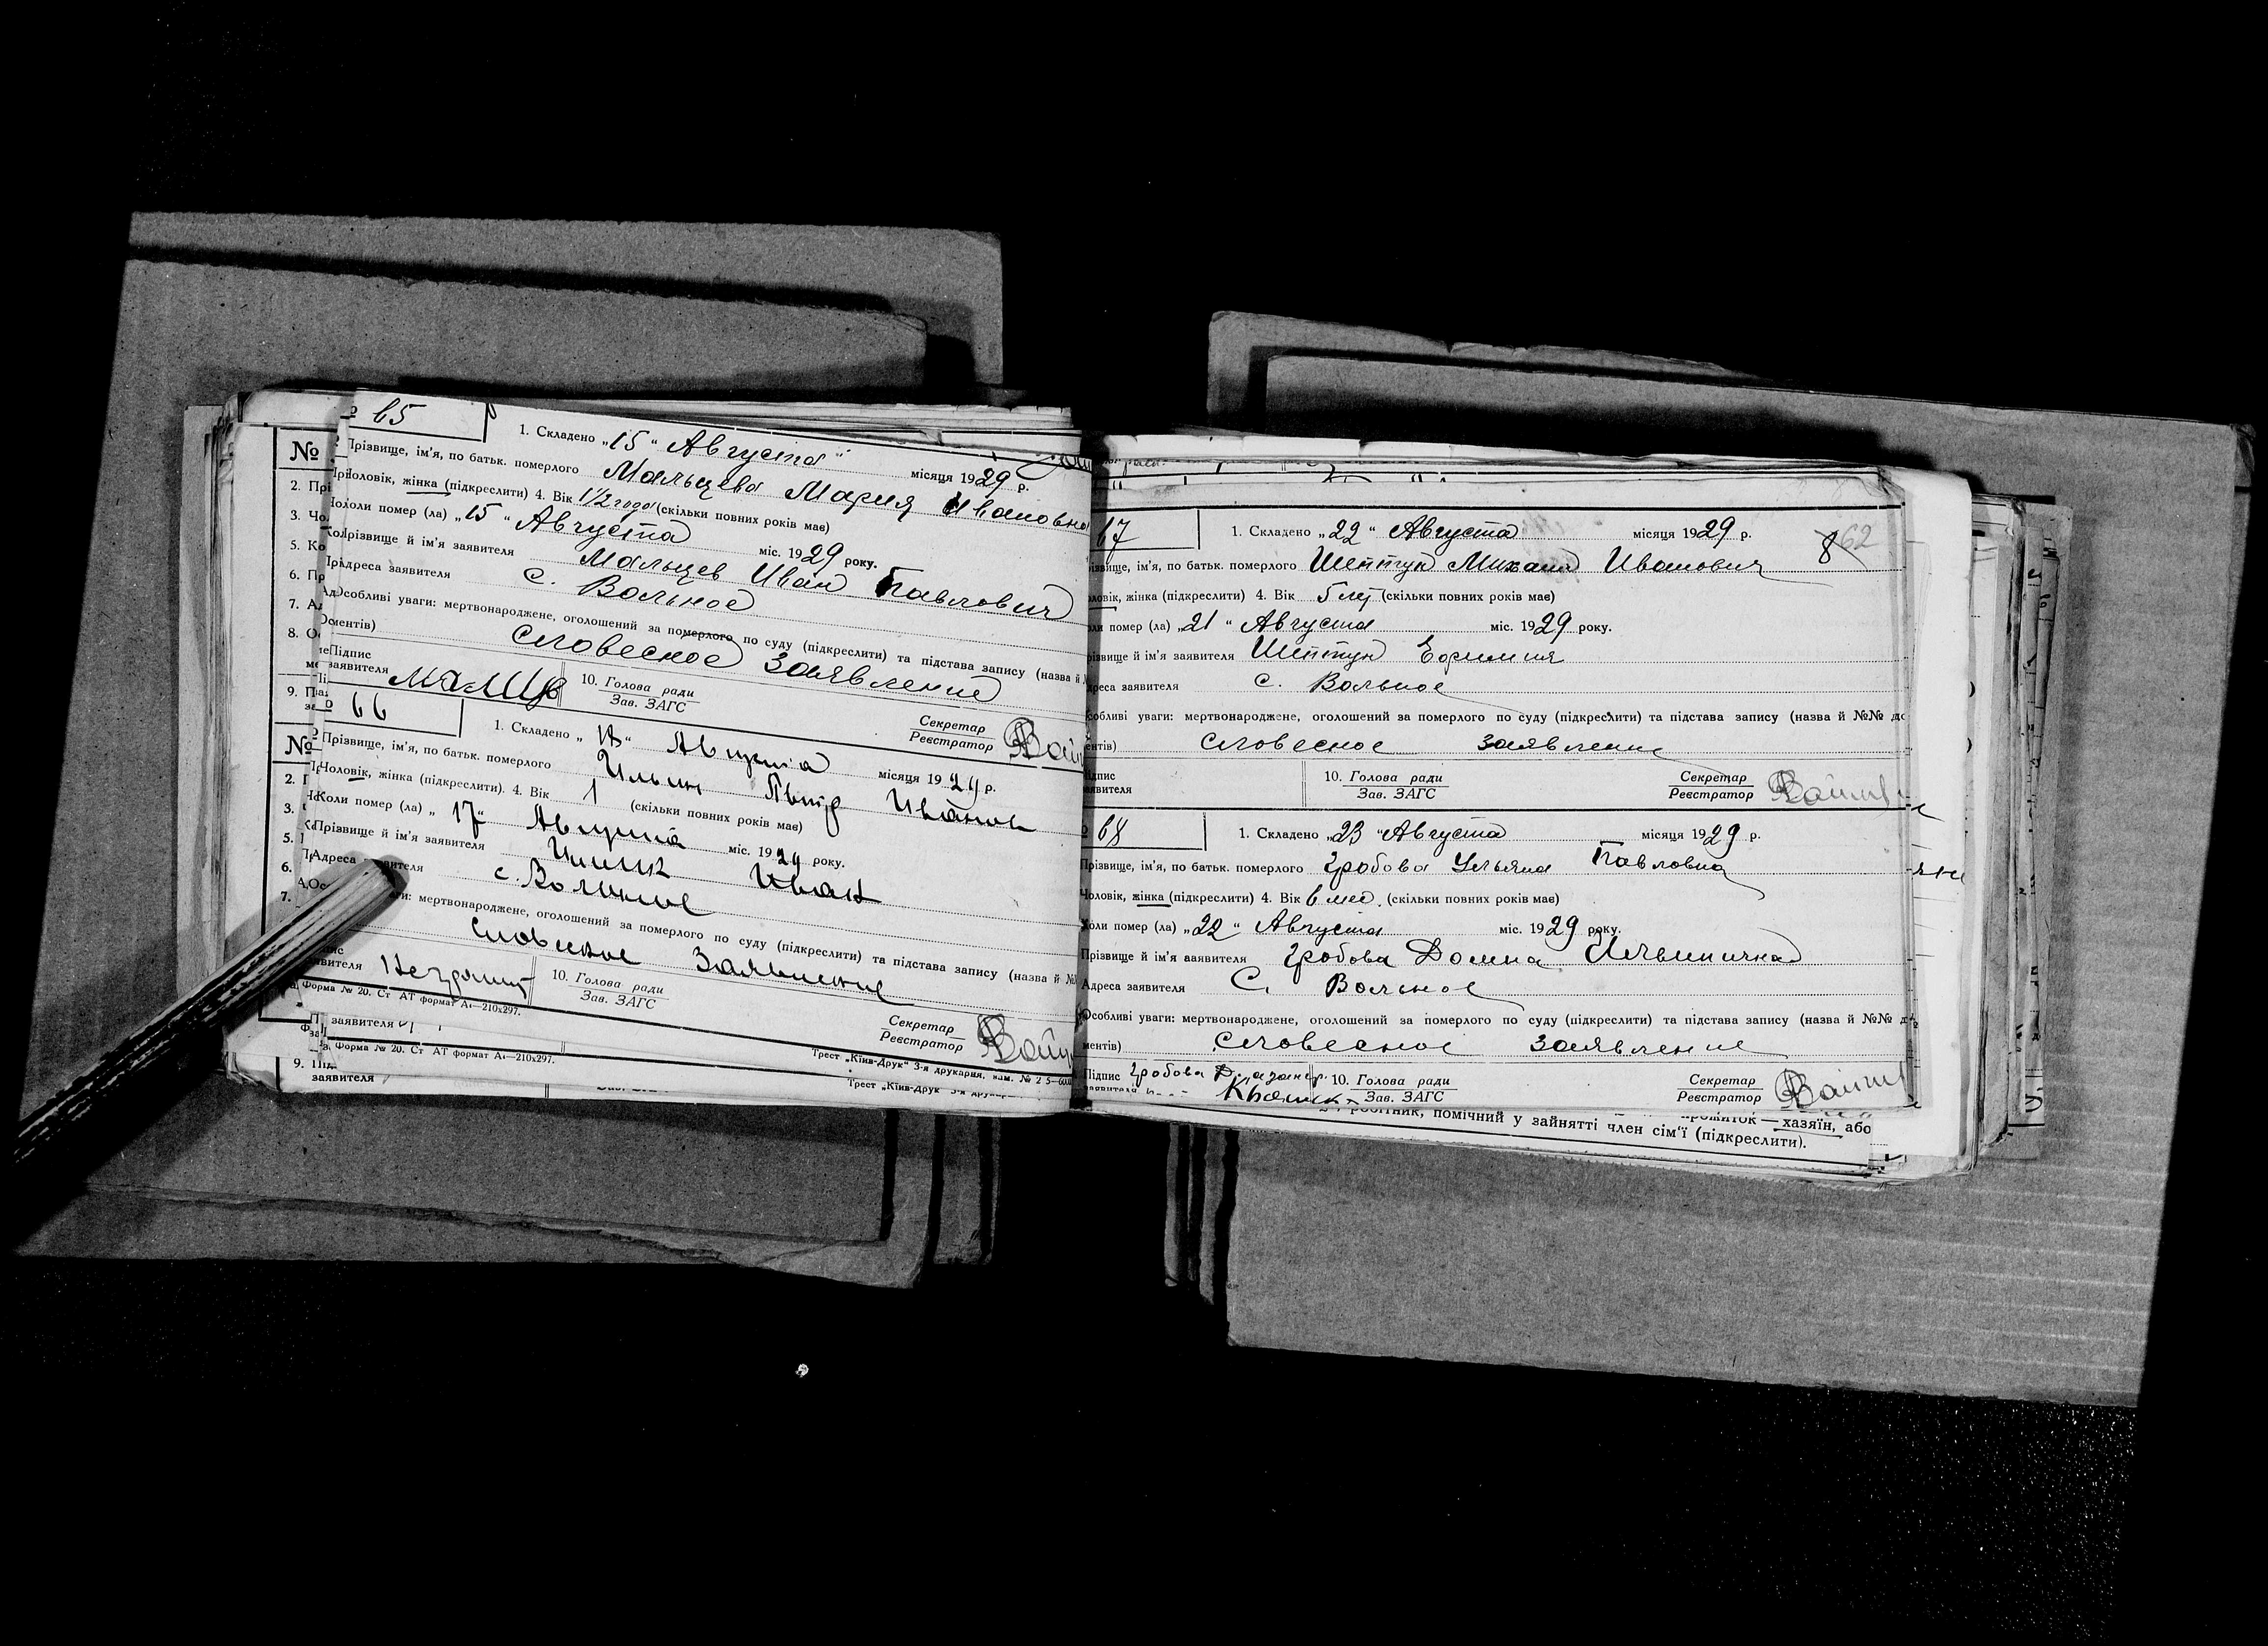 № 65
1. Складено „15“ Августа місяця 1929 р.
Прізвище, ім'я, по батьк. померлого Мальцева Мария Ивановна
Чоловік, жінка (підкреслити) 4. Вік 1 1/2 года (скільки повних років має)
Коли помер (ла) „15“ Августа міс. 1929 року.
Прізвище й ім'я заявителя Мальцев Иван Павлович
Адреса заявителя с. Вольное
Особливі уваги: мертвонароджене, оголошений за померлого по суду (підкреслити) та підстава запису (назва й
ментів) Словесное заявление
Підпис заявителя 10. Голова ради Секретар
Зав. ЗАГС Реєстратор
66
1. Складено Августа місяця 1929 р.
Прізвище, ім'я, по батьк. померлого Ильин Петр Иванов
Чоловік, жінка (підкреслити). 4. Вік 1 (скільки повних років має)
Коли помер (ла) „17“ Августа міс. 1929 року.
Прізвище й ім'я заявителя Ильин Иван
Адреса заявителя с. Вольное
мертвонароджене, оголошений за померлого по суду (підкреслити) та підстава запису (назва й №
Словесное Заявление
10. Голова ради Секретар
Зав. ЗАГС Реєстратор
Форма № 20. Ст АТ формат А4—210x297.
заявителя
Форма № 20. Ст АТ формат А4—210x297. Трест „Київ-Друк“ 3-я друкарня,
9. Під.
заявителя
67 1. Складено „22“ Августа місяця 1929 р.
8 62
ім'я, по батьк. померлого Шептун Михаил Иванович
жінка (підкреслити) 4. Вік 5 лет (скільки повних років має)
помер (ла) „21“ Августа міс. 1929 року.
й ім'я заявителя Шептун Ефимия
заявителя с. Вольное
уваги: мертвонароджене, оголошений за померлого по суду (підкреслити) та підстава запису (назва й №№ до
ентів) Словесное заявление
10. Голова ради Секретар
Зав. ЗАГС Реєстратор
68 1. Складено „23“ Августа місяця 1929 р.
Прізвище, ім'я, по батьк. померлого Гробова Ульяна Павловна
Чоловік, жінка (підкреслити) 4. Вік 6 мес. (скільки повних років має)
Коли помер (ла) „22“ Августа міс. 1929 року.
Прізвище й ім'я заявителя Гробова Домна
Адреса заявителя С. Вольное
Особливі уваги: мертвонароджене, оголошений за померлого по суду (підкреслити) та підстава запису (назва й №№ д
ментів) Словесное заявление
Підпис Гробова 10. Голова ради Секретар
заявителя Зав. ЗАГС Реєстратор
робітник, помічний у зайнятті член сім'ї (підкреслити). хазяїн, або